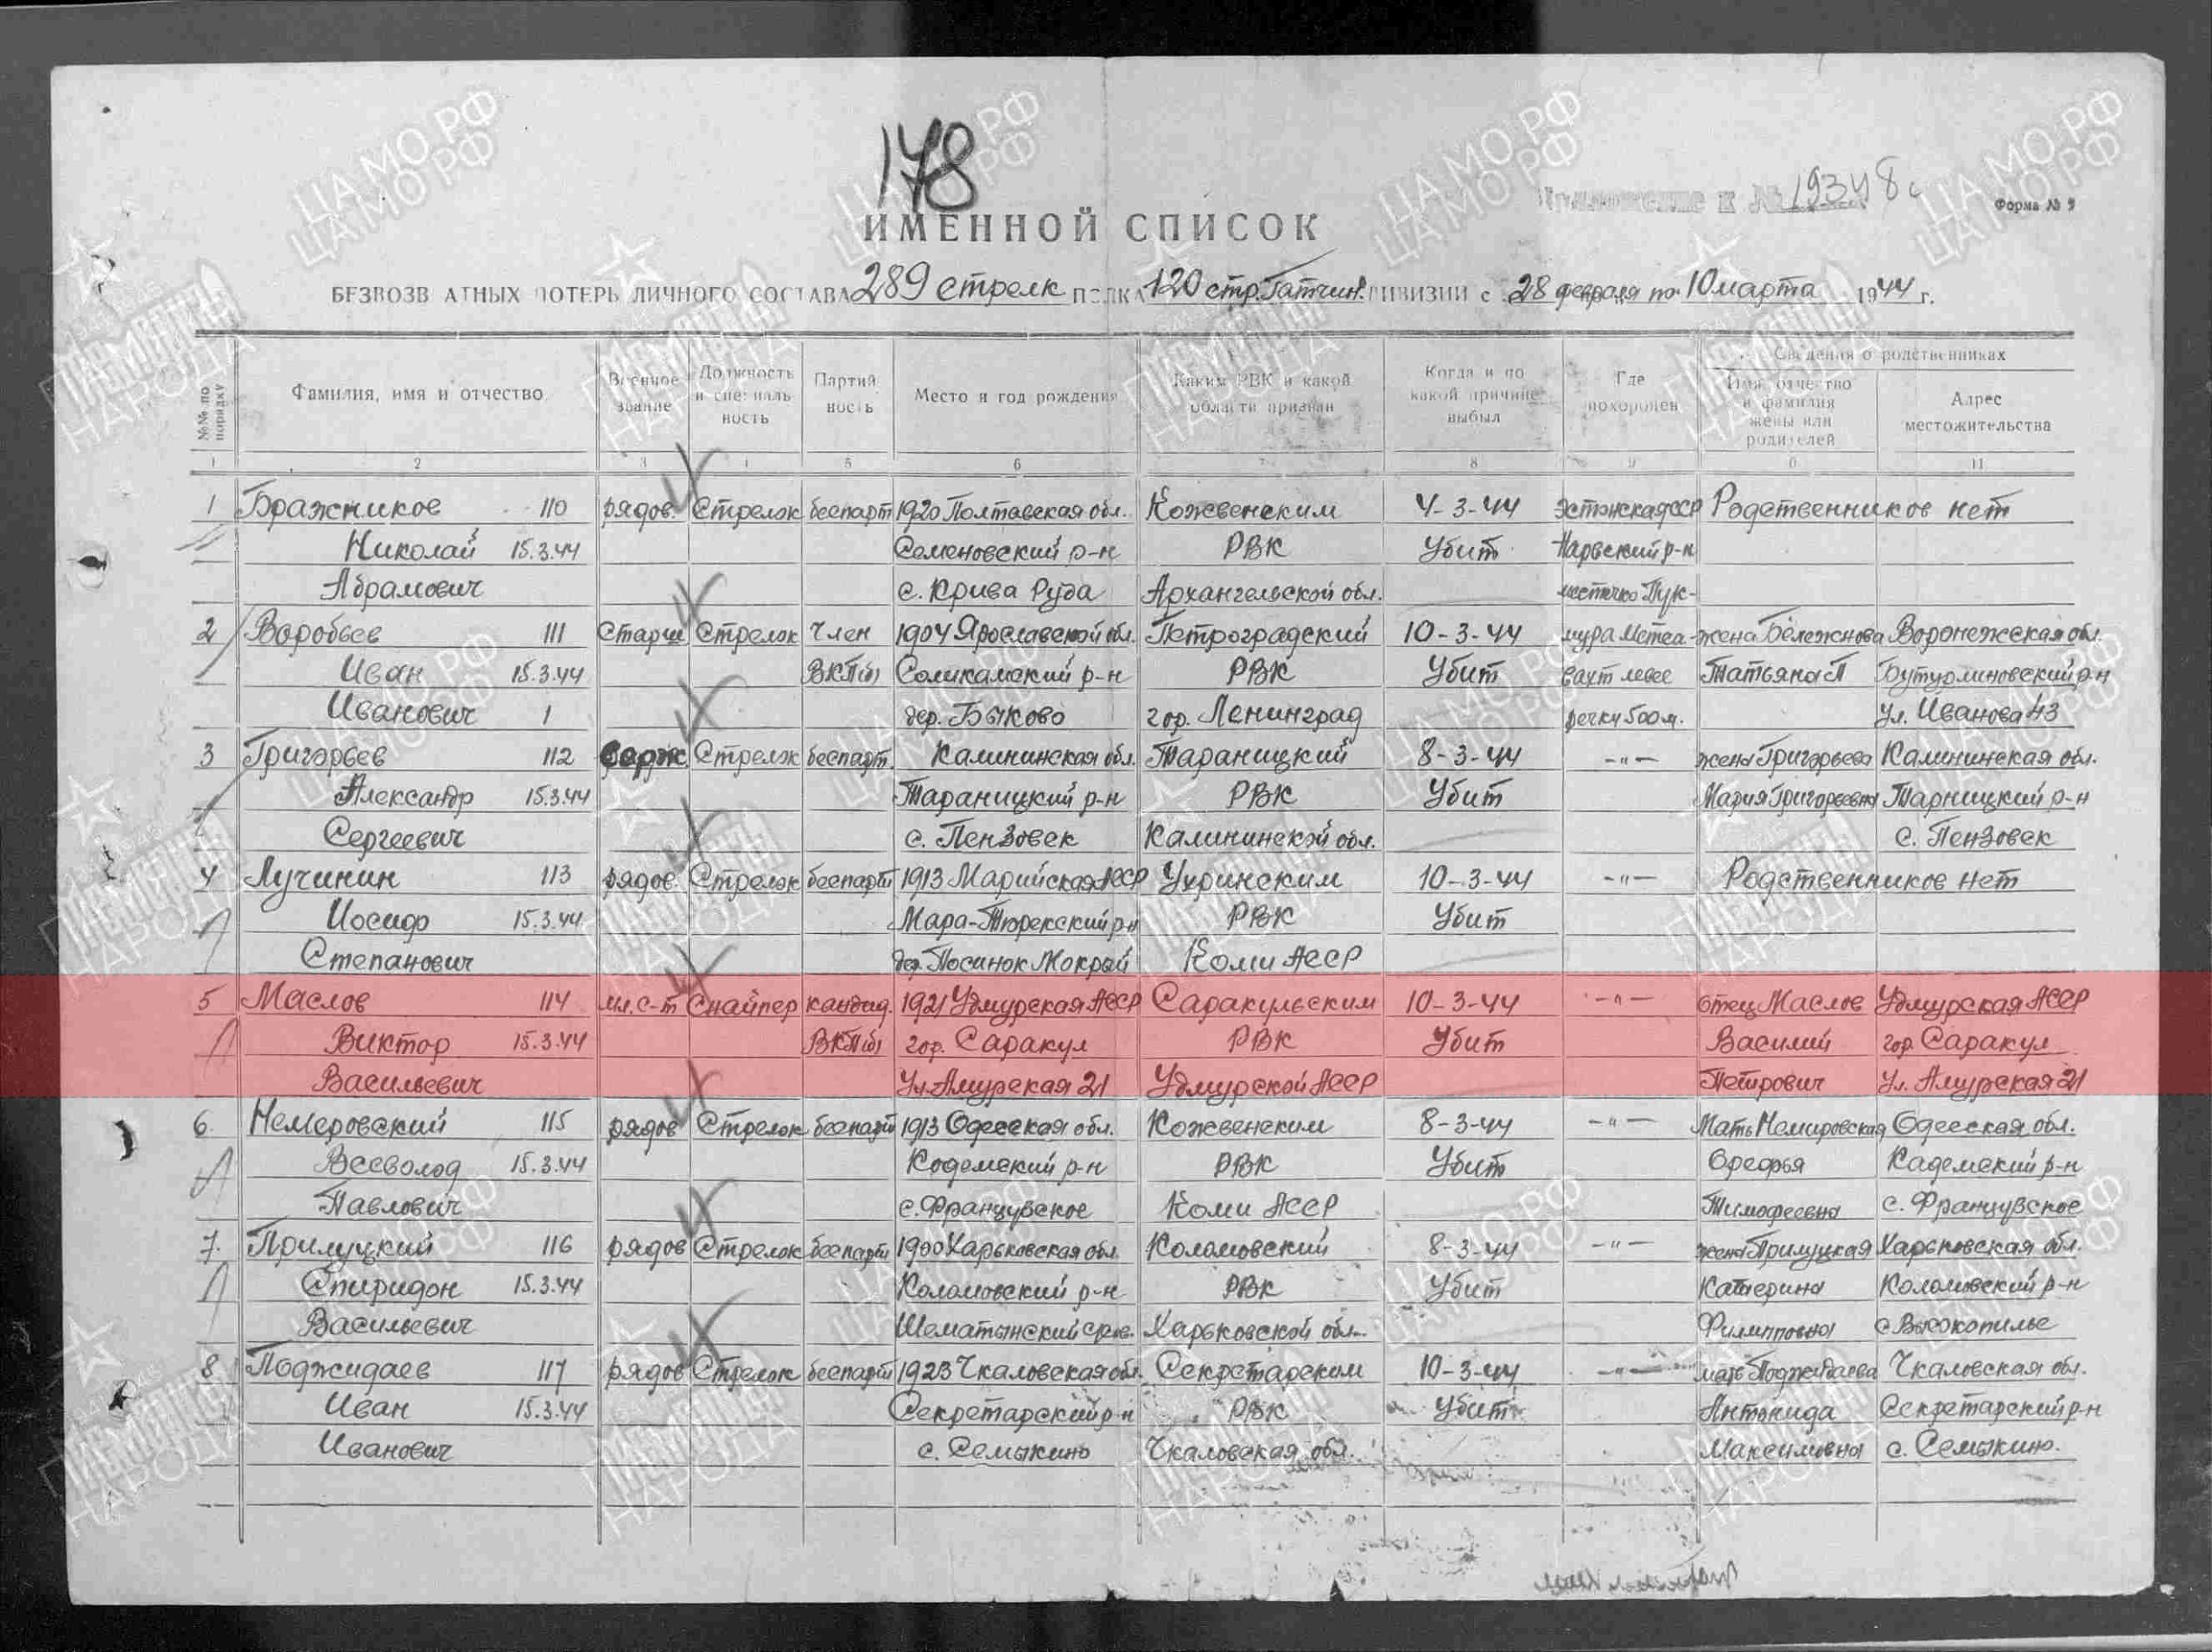 178
Приложение к № 19348с
Форма № 9
ИМЕННОЙ СПИСОК
БЕЗВОЗВ АТНЫХ ПОТЕРЬ ЛИЧНОГО СОСТАВА 289 стрелк ПОЛКА 120 стр. Гатчин. ДИВИЗИИ с 28 февраля по 10 марта 1944 г.
№№ по порядку
Фамилия, имя и отчество
Военное звание
Должность и специальность
Партийность
Место и год рождения
Каким РВК и какой области призван
Когда и по какой причине выбыл
Где похоронен
Сведения о родственниках
Имя, отчество и фамилия жены или родителей
Адрес местожительства
1 2 3 4 5 6 7 8 9 0 11
1 Бражников 110 рядов. Стрелок беспарт 1920 Полтавская обл. Кожвенским 4-3-44 Эстонская ССР Родственников нет
Николай 15.3.44 Семеновский р-н РВК Убит Нарвский р-н
Абрамович с. Крива Руда Архангельской обл. местечко Пук-
2 Воробьев 111 Старш Стрелок Член 1904 Ярославской обл. Петроградский 10-3-44 жена Бележнова Воронежская обл.
Иван 15.3.44 ВКП(б) Соликамский р-н РВК Убит Татьяна П Бутурлиновский р-н
Иванович 1 дер. Быково гор. Ленинград речки 500 м. ул. Иванова 43
3 Григорьев 112 Серж. Стрелок беспарт. Калининская обл. Тараницкий 8-3-44 -"- жена Григорьева Калининская обл.
Александр 15.3.44 Тараницкий р-н РВК Убит Мария Григорьевна Тарницкий р-н
Сергеевич с. Пензовек Калининской обл. с. Пензовек
4 Лучинин 113 рядов. Стрелок беспарт 1913 Марийская АССР Ухринским 10-3-44 -"- Родственников нет
Иосиф 15.3.44 Мара-Тюрекский р-н РВК Убит
Степанович дер. Посинок Мокрый Коми АССР
5 Маслов 114 мл. с-т Снайпер кандид. 1921 Удмурская АССР Саракульским 10-3-44 -"- отец Маслов Удмурская АССР
Виктор 15.3.44 ВКП(б) гор. Саракул РВК Убит Василий гор. Саракул
Васильевич Ул. Амурская 21 Удмурской АССР Петрович Ул. Амурская 21
6. Немеровский 115 рядов Стрелок беспарт 1913 Одесская обл. Кожвенским 8-3-44 -"- Мать Немировская Одесская обл.
Всеволод 15.3.44 Кодемский р-н РВК Убит Орефья Кадемский р-н
Павлович с. Французское Коми АССР Тимофеевна с. Французское
7. Прилуцкий 116 рядов Стрелок беспарт 1900 Харьковская обл. Коломовский 8-3-44 -"- жена Прилуцкая Харьковская обл.
Спиридон 15.3.44 Коломовский р-н РВК Убит Катерина Коломовский р-н
Васильевич Шематынский Харьковской обл. Филипповна с Высокополье
8 Поджидаев 117 рядов Стрелок беспарт 1923 Чкаловская обл. Секретарским 10-3-44 -"- мать Поджидаева Чкаловская обл.
Иван 15.3.44 Секретарский р-н РВК Убит Антонида Секретарский р-н
Иванович с. Семыкино Чкаловская обл. Максимовна с. Семыкино.
ЦАМО РФ
ПАМЯТЬ НАРОДА